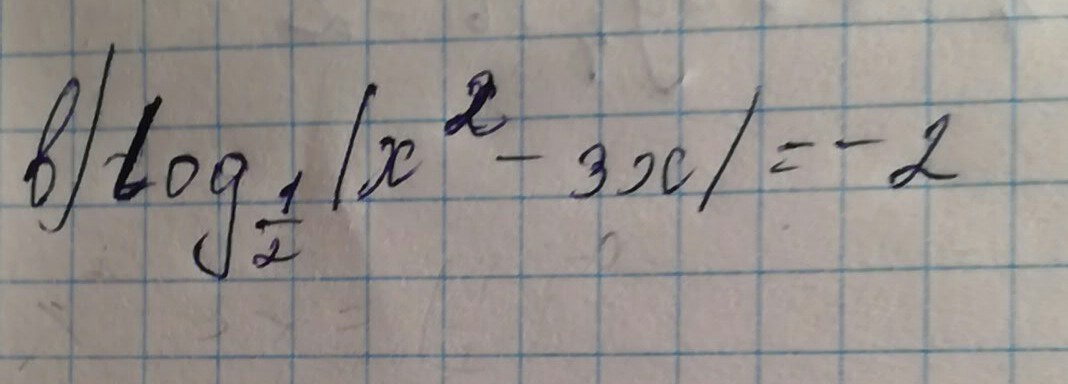 в) log_{\frac{1}{2}} (x^2 - 3x) = -2